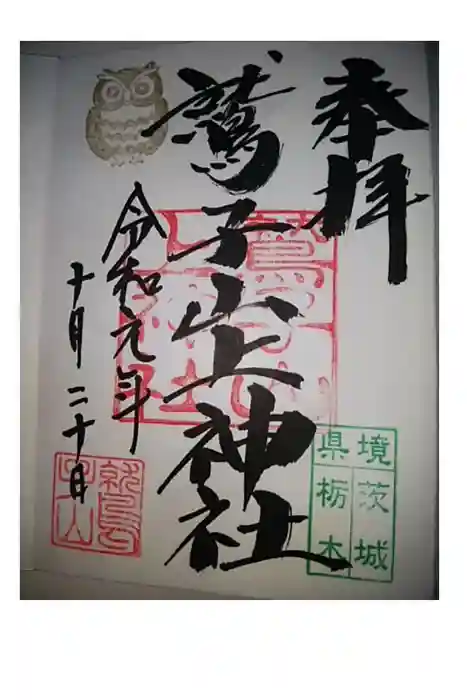 奉拝
鷲子山上神社
令和元年
十月二十日
鷲子山上神社
境茨城
県栃木
鷲子山